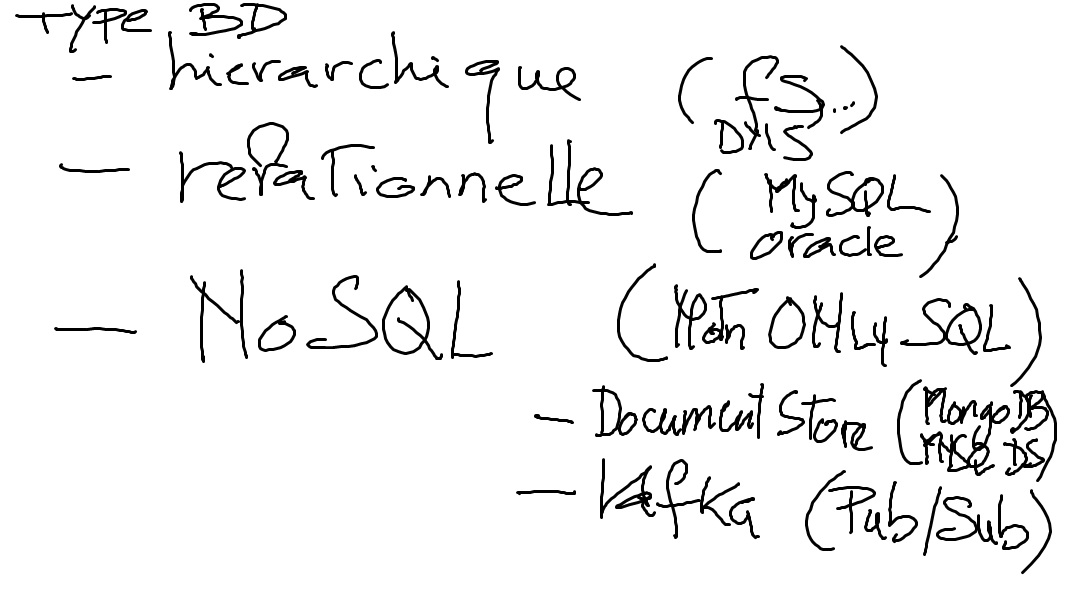 TYPE BD
- hierarchique (fS...)
- relationnelle (MySQL
oracle)
- NoSQL ( ONLy SQL)
- Document Store (MongoDB
DS)
- Kafka (Pub/Sub)